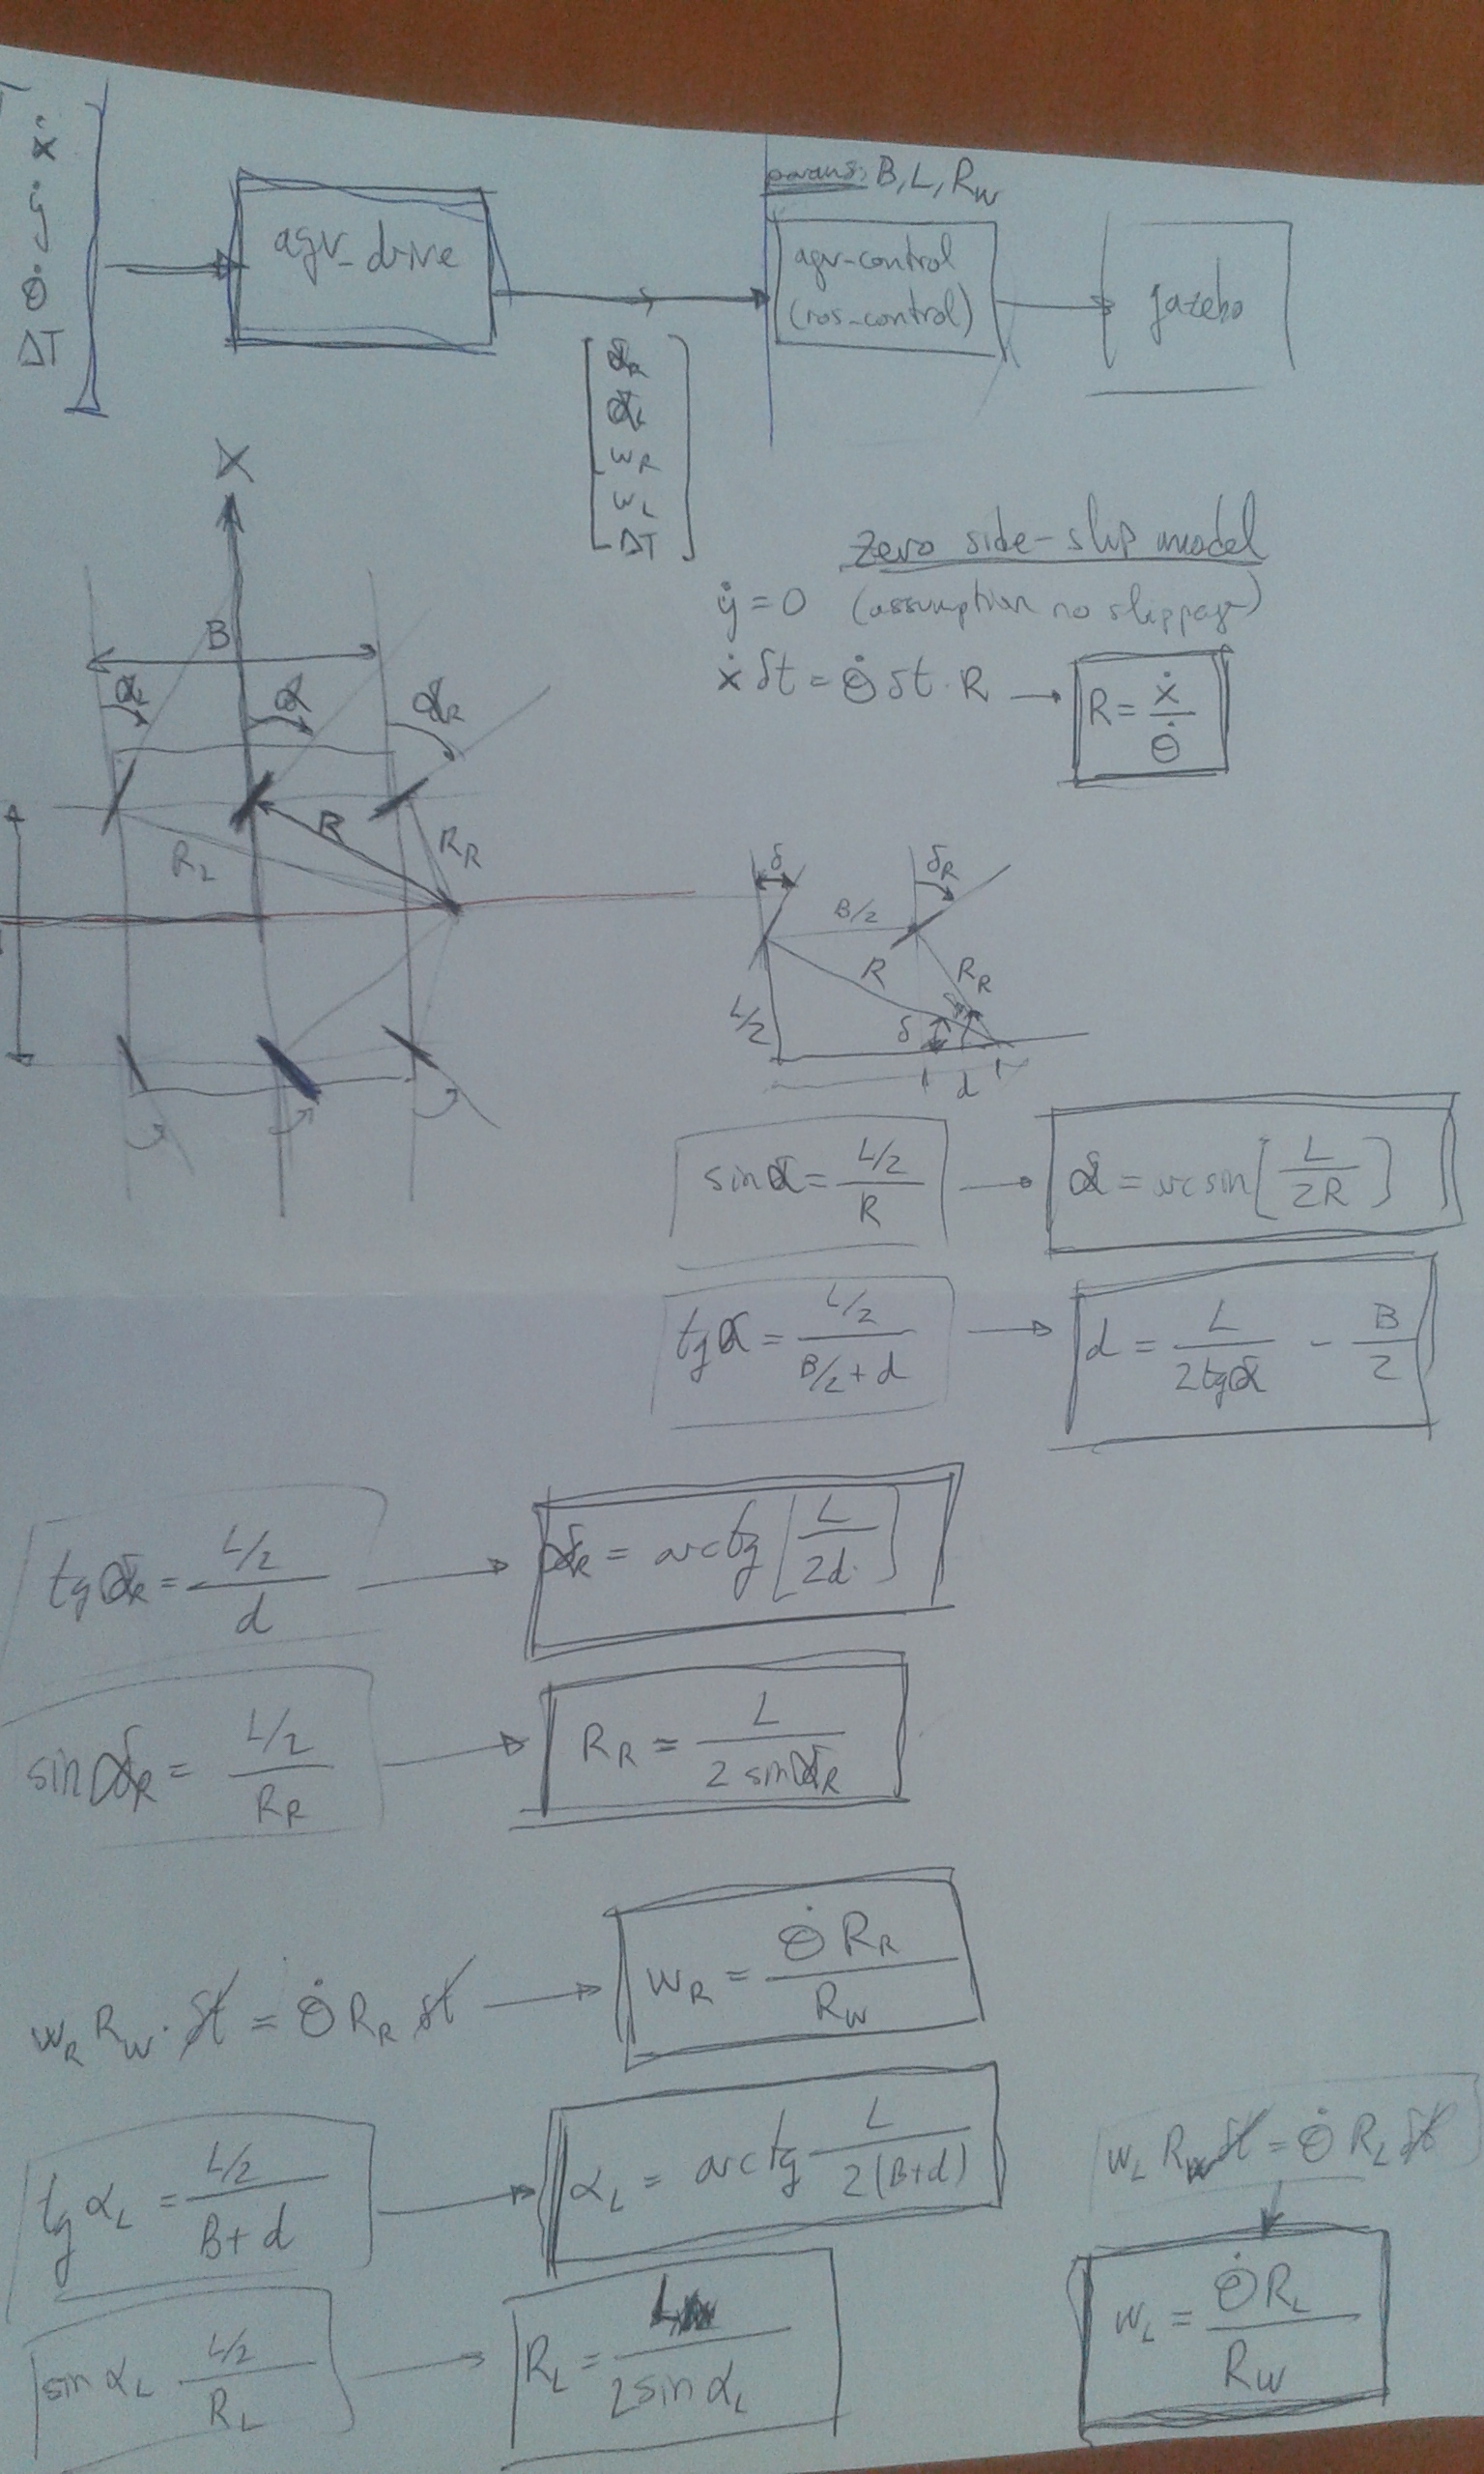 ẋ
ẏ
θ̇
ΔT
agv_drive
params: B, L, R_W
agv-control
(ros_control)
gazebo
α_R
α_L
w_R
w_L
ΔT
X
B
α_L
α
α_R
R
R_L
R_R
zero side-slip model
ẏ = 0 (assumption no slippage)
ẋ δt = θ̇ δt · R → R = ẋ / θ̇
δ
δ_R
B/2
R
R_R
L/2
δ
d
sin α = (L/2) / R → α = arcsin [ L / 2R ]
tg α = (L/2) / (B/2 + d) → d = L / (2 tg α) - B / 2
tg α_R = (L/2) / d → α_R = arctg [ L / 2d ]
sin α_R = (L/2) / R_R → R_R = L / (2 sin α_R)
w_R R_W · δt = θ̇ R_R δt → w_R = θ̇ R_R / R_W
tg α_L = (L/2) / (B + d) → α_L = arctg L / 2(B+d)
w_L R_W δt = θ̇ R_L δt
sin α_L (L/2) / R_L → R_L = L / (2 sin α_L)
w_L = θ̇ R_L / R_W